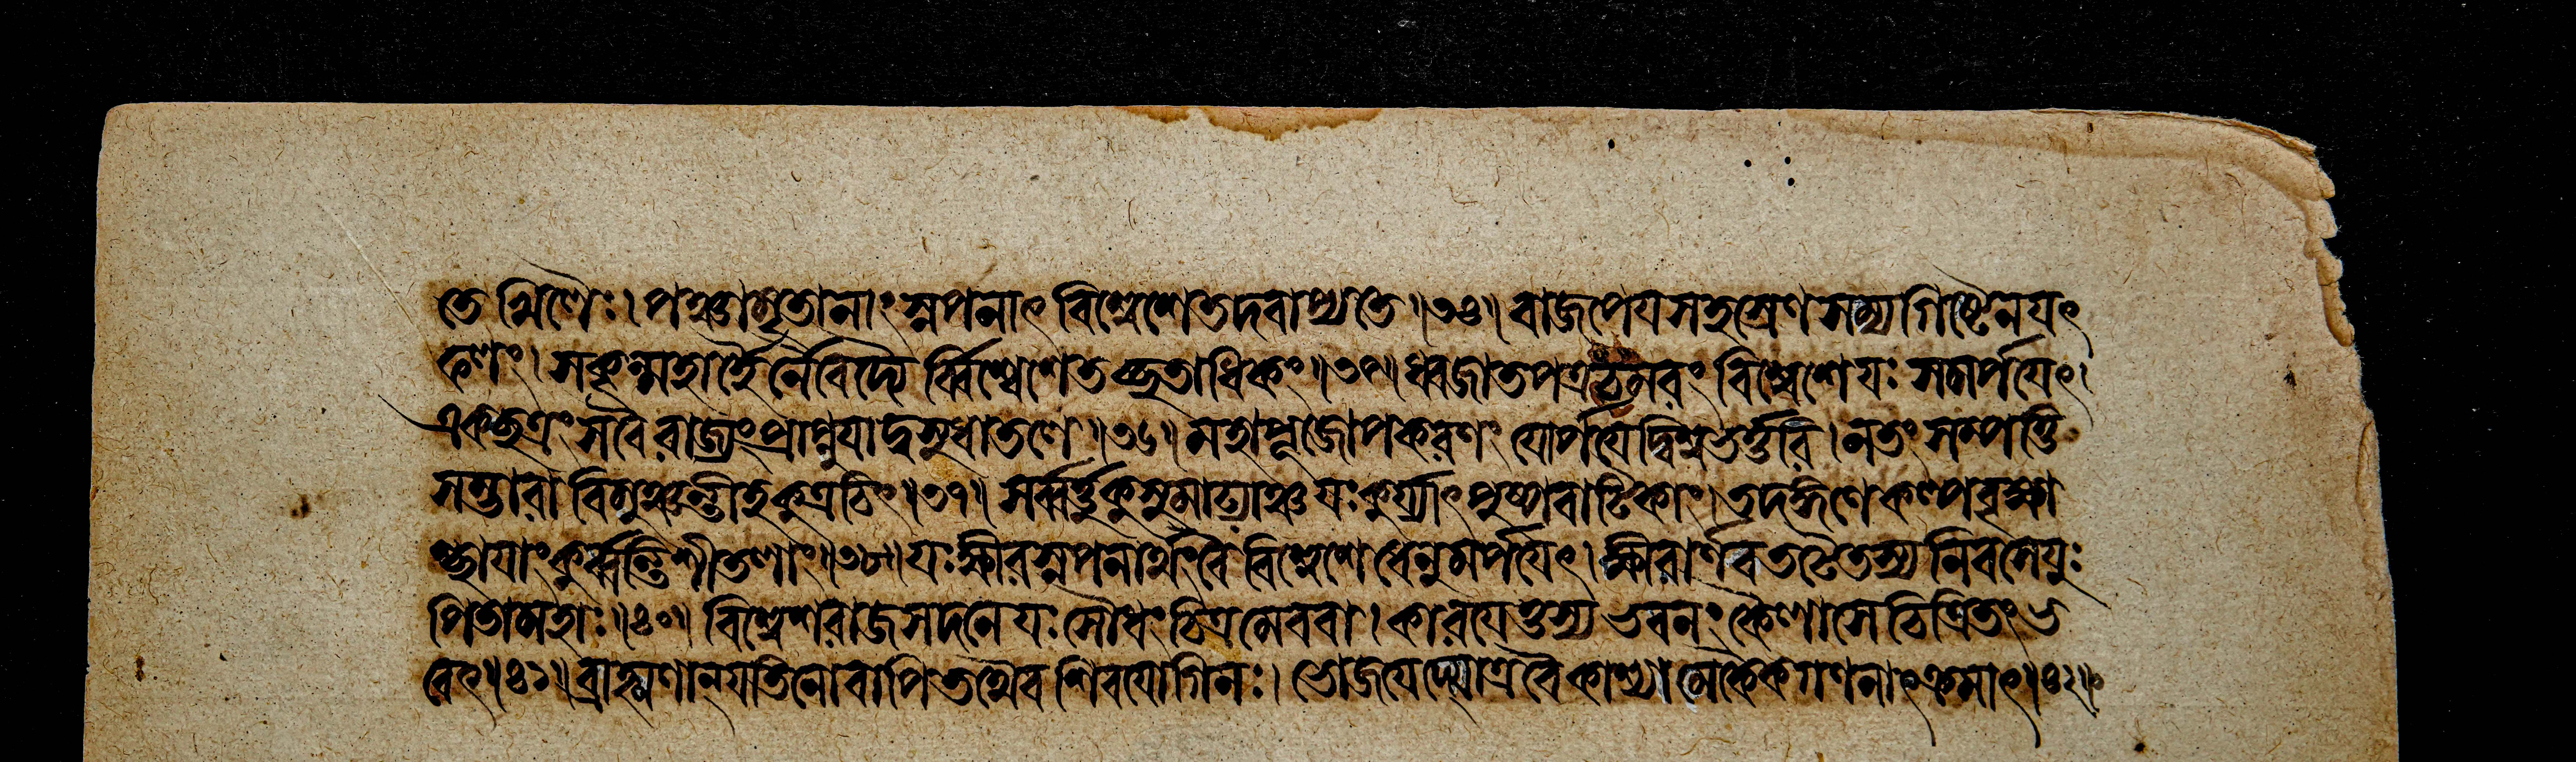 তে ঘ্মিণৈঃ। পঞ্চামৃতানাং স্নপনাৎ বিশ্বেশে তদবাপ্যতে॥৩৪॥ বাজপেয সহস্রেণ সম্যগিষ্টেন যৎ
ফলং। সকৃন্মহার্হৈর্নৈবেদ্যৈর্ব্বিশ্বেশে তচ্ছতাধিকং॥৩৫॥ ধ্বজাতপত্রচমরং বিশ্বেশে যঃ সমর্পযেৎ।
একছত্রং সবৈ রাজ্যং প্রাপ্নুযাদ্বসুধাতলে॥৩৬॥ মহাপূজোপকরণং যোর্পযেদ্বিশ্বভর্ত্তরি। নতং সম্পত্তি
সম্ভারা বিমুঞ্চন্তীহ কুত্রচিৎ॥৩৭॥ সর্ব্বর্ত্তুকুসুমাঢ্যাঞ্চ যঃ কুর্য্যাৎ পুষ্পবাটিকাং। তদঙ্গণে কল্পবৃক্ষা
শ্ছাযাং কুর্ব্বন্তি শীতলাং॥৩৮॥ যঃ ক্ষীরস্নপনার্থং বৈ বিশ্বেশে ধেনুমর্পযেৎ। ক্ষীরার্ণবতটে তস্য নিবসেযুঃ
পিতামহাঃ॥৪০॥ বিশ্বেশরাজসদনে যঃ সৌধং চিত্রমেববা। কারযেত্তস্য ভবনং কৈলাসে চিত্রিতং ভ
বেৎ॥৪১॥ ব্রাহ্মণান্ যতিনো বাপি তথৈব শিবযোগিনঃ। ভোজযেদ্যোত্র বৈ কাশ্যামেকৈকগণনাৎক্রমাৎ॥৪২॥